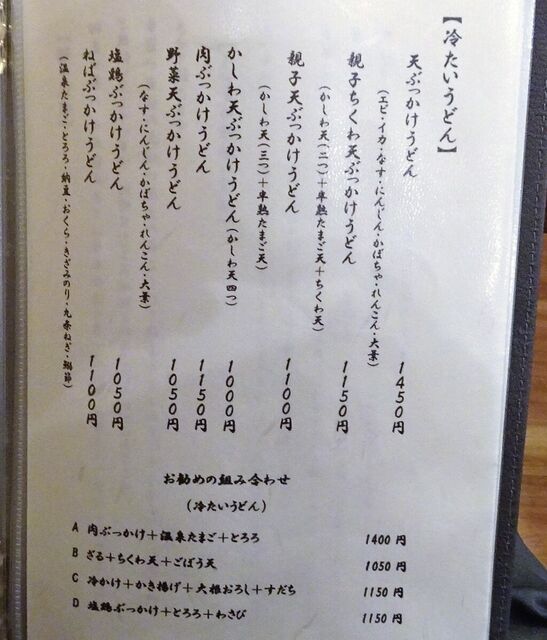 【冷たいうどん】
天ぶっかけうどん 1450円
(エビ・イカ・なす・にんじん・かぼちゃ・れんこん・大葉)
親子ちくわ天ぶっかけうどん 1150円
(かしわ天(二つ)+半熟たまご天+ちくわ天)
親子天ぶっかけうどん 1100円
(かしわ天(三つ)+半熟たまご天)
かしわ天ぶっかけうどん(かしわ天四つ) 1000円
肉ぶっかけうどん 1150円
野菜天ぶっかけうどん 1050円
(なす・にんじん・かぼちゃ・れんこん・大葉)
塩鶏ぶっかけうどん 1050円
ねばぶっかけうどん 1100円
(温泉たまご・とろろ・納豆・おくら・きざみのり・九条ねぎ・鰹節)
お勧めの組み合わせ
(冷たいうどん)
A 肉ぶっかけ+温泉たまご+とろろ 1400円
B ざる+ちくわ天+ごぼう天 1050円
C 冷かけ+かき揚げ+大根おろし+すだち 1150円
D 塩鶏ぶっかけ+とろろ+わさび 1150円